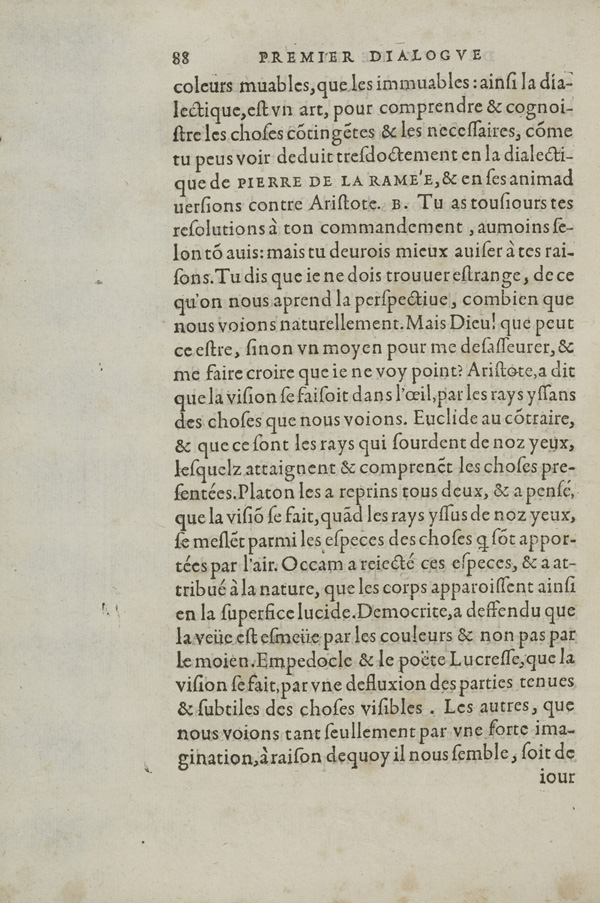 88 PREMIER DIALOGVE
coleurs muables,que les immuables : ainſi la dia-
lectique,eſt vn art, pour comprendre & cognoi-
ſtre les choſes cõtingẽtes & les neceſſaires, cõme
tu peus voir deduit treſdoctement en la dialecti-
que de PIERRE DE LA RAME'E,& en ſes animad
uerſions contre Ariſtote. B. Tu as touſiours tes
reſolutions à ton commandement , aumoins ſe-
lon tõ auis: mais tu deurois mieux auiſer à tes rai-
ſons.Tu dis que ie ne dois trouuer eſtrange, de ce
qu'on nous aprend la perſpectiue, combien que
nous voions naturellement.Mais Dieu! que peut
ce eſtre, ſinon vn moyen pour me deſaſſeurer, &
me faire croire que ie ne voy point? Ariſtote,a dit
que la viſion ſe faiſoit dans l'œil,par les rays yſſans
des choſes que nous voions. Euclide au cõtraire,
& que ce ſont les rays qui ſourdent de noz yeux,
leſquelz attaignent & comprenẽt les choſes pre-
ſentées.Platon les a reprins tous deux, & a penſé,
que la viſiõ ſe fait,quãd les rays yſſus de noz yeux,
ſe meſlẽt parmi les eſpeces des choſes q ſõt appor-
tées par l'air. Occam a reiecté ces eſpeces, & a at-
tribué à la nature, que les corps apparoiſſent ainſi
en la ſuperfice lucide.Democrite,a deffendu que
la veüe eſt eſmeüe par les couleurs & non pas par
le moien.Empedocle & le poëte Lucreſſe,que la
viſion ſe fait,par vne defluxion des parties tenues
& ſubtiles des choſes viſibles . Les autres, que
nous voions tant ſeullement par vne forte ima-
gination,à raiſon dequoy il nous ſemble, ſoit de
iour